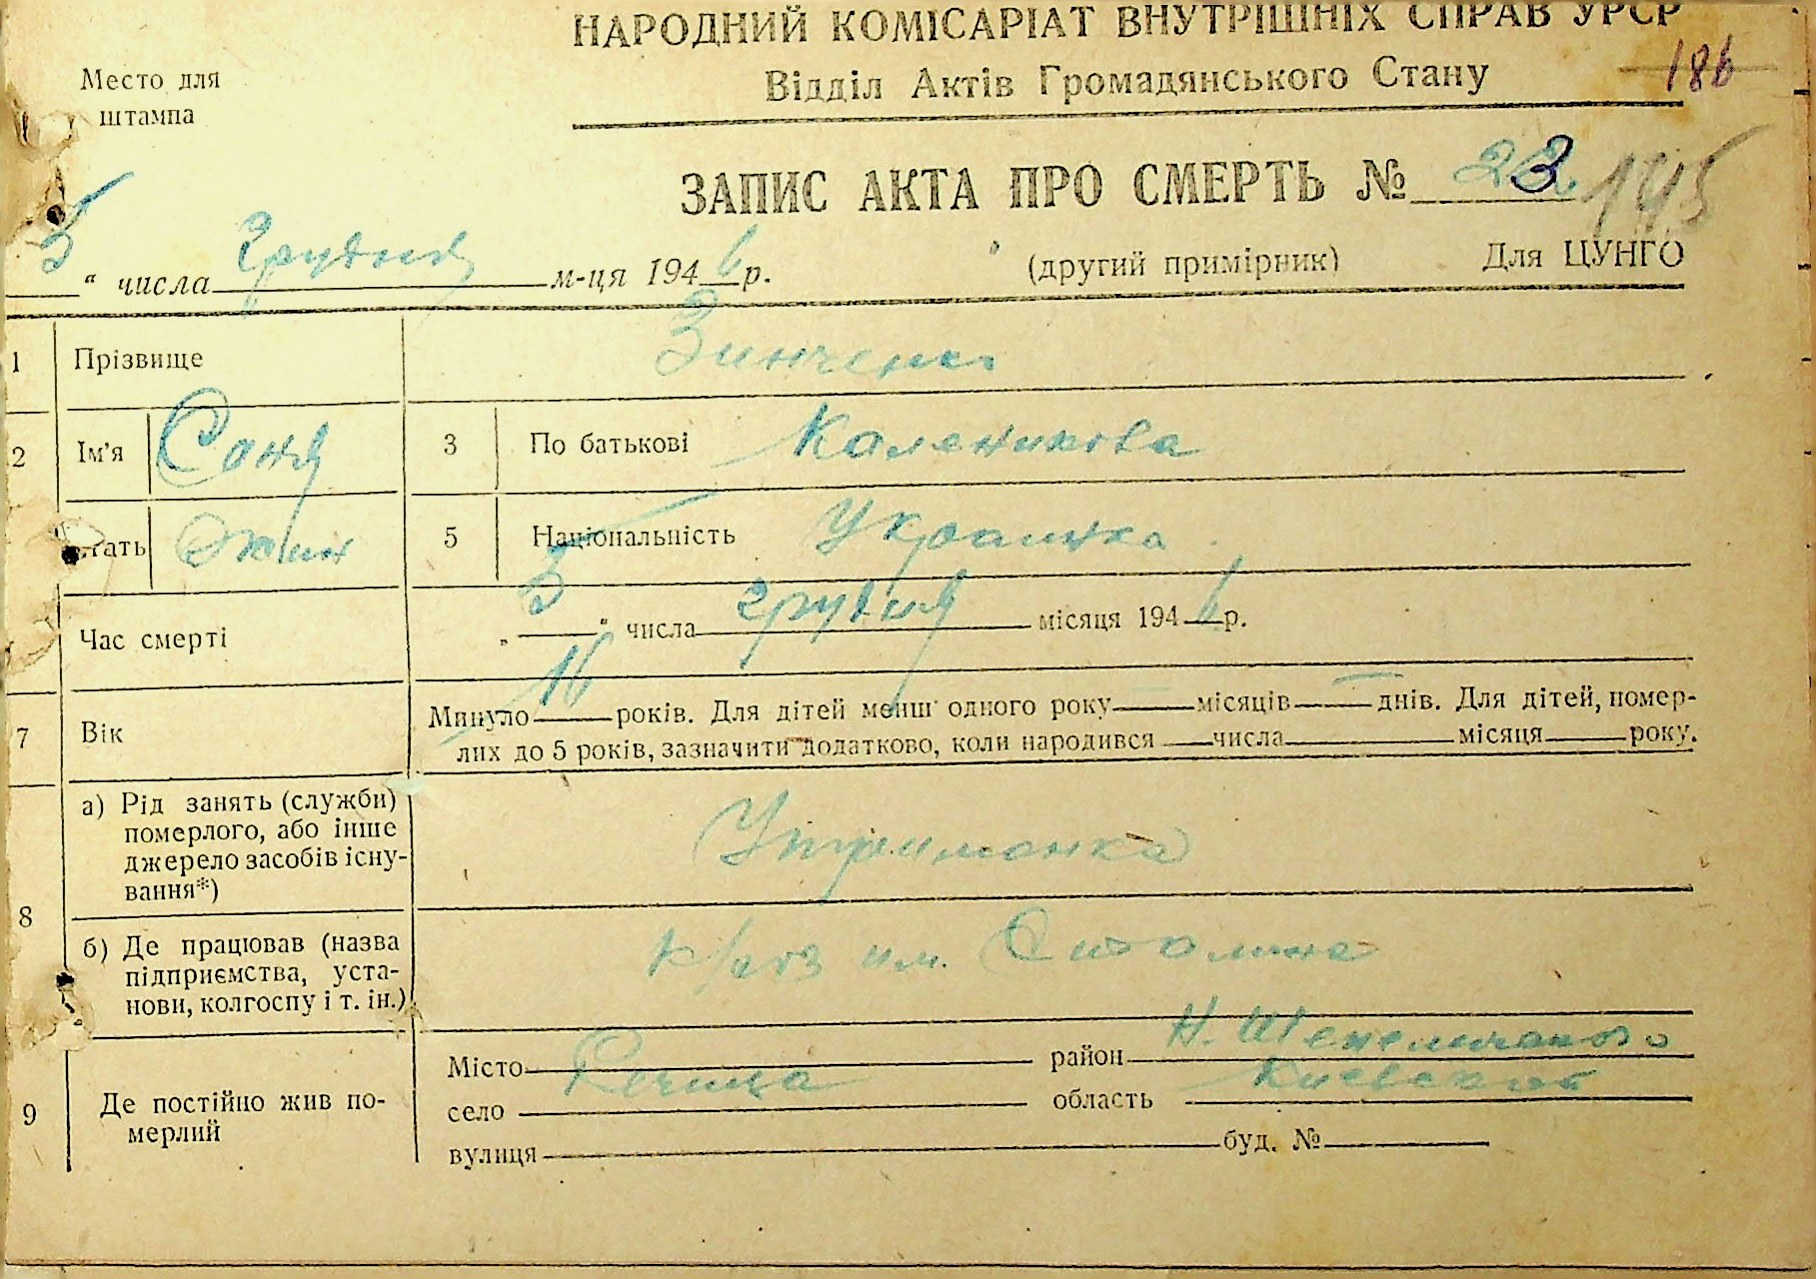 НАРОДНИЙ КОМІСАРІАТ ВНУТРІШНІХ СПРАВ УРСР
186
Место для штампа
Відділ Актів Громадянського Стану
ЗАПИС АКТА ПРО СМЕРТЬ № 23
5 " числа грудня м-ця 1946 р. (другий примірник) Для ЦУНГО
1 Прізвище Зинченко
2 Ім'я Соня 3 По батькові Каленикова
стать жин 5 Національність Украинка
Час смерті „ 5 " числа грудня місяця 1946 р.
7 Вік Минуло 16 років. Для дітей менш одного року — місяців — днів. Для дітей, помер-
лих до 5 років, зазначити додатково, коли народився числа місяця року.
8 а) Рід занять (служби)
померлого, або інше
джерело засобів існу-
вання*) Утриманка
б) Де працював (назва
підприємства, уста-
нови, колгоспу і т. ін.) к/газ им.
9 Де постійно жив по-
мерлий
Місто район
село область Киевская
вулиця буд. №